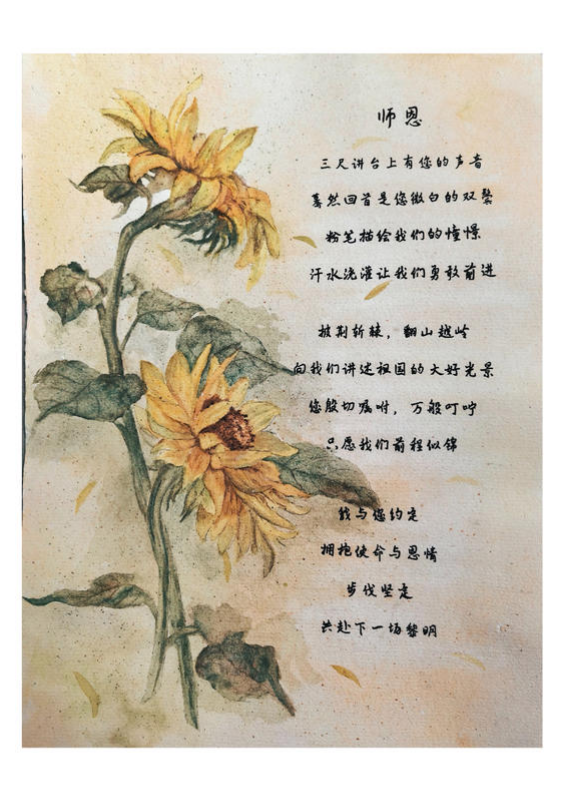 师恩
三尺讲台上有您的声音
蓦然回首是您微白的双鬓
粉笔描绘我们的憧憬
汗水浇灌让我们勇敢前进
披荆斩棘，翻山越岭
向我们讲述祖国的大好光景
您殷切嘱咐，万般叮咛
只愿我们前程似锦
我与您约定
拥抱使命与恩情
步伐坚定
共赴下一场黎明